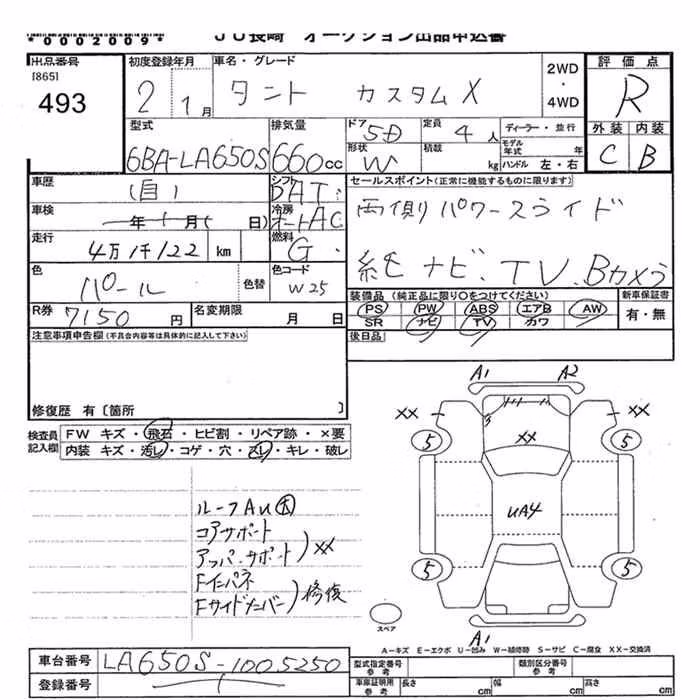 *0002009*
JU長崎 オークション出品申込書
出品番号
[865]
493
初度登録年月
2 1月
車名・グレード
タント カスタムX
2WD
・
4WD
評価点
R
外装 内装
C B
型式
6BA-LA650S
排気量
660cc
ドア 5D
形状 W
定員 4人
積載 kg
ディーラー・並行
モデル年式 年
ハンドル 左・右
車歴
(自)
シフト
DAT
セールスポイント(正常に機能するものに限ります)
両側パワースライド
純正ナビ、TV、Bカメラ
車検
年 月( 日)
冷房
オートAC
走行
4万1千122 km
燃料
G
色
パール
色替
色コード
W25
装備品(純正品に限り○をつけてください)
PS PW ABS エアB AW
SR ナビ TV カワ
新車保証書
有・無
R券
7150円
名変期限
月 日
後日品
注意事項申告欄(不具合内容等は具体的に記入して下さい)
修復歴 有〔箇所 〕
検査員
記入欄
FW キズ・飛石・ヒビ割・リペア跡・×要
内装 キズ・汚レ・コゲ・穴・スレ・キレ・破レ
ルーフAU大
コアサポート
アッパーサポート)XX
Fインパネ
Fサイドメンバー)修復
A1 A2
XX XX
5 5
XX
UA4
5 5
スペア
A1
A-キズ E-エクボ U-凹み W-補修跡 S-サビ C-腐食 XX-交換済
車台番号
LA650S-1005250
登録番号
型式指定番号
参考
類別区分番号
参考
車庫証明用
参考
長さ cm
幅 cm
高さ cm